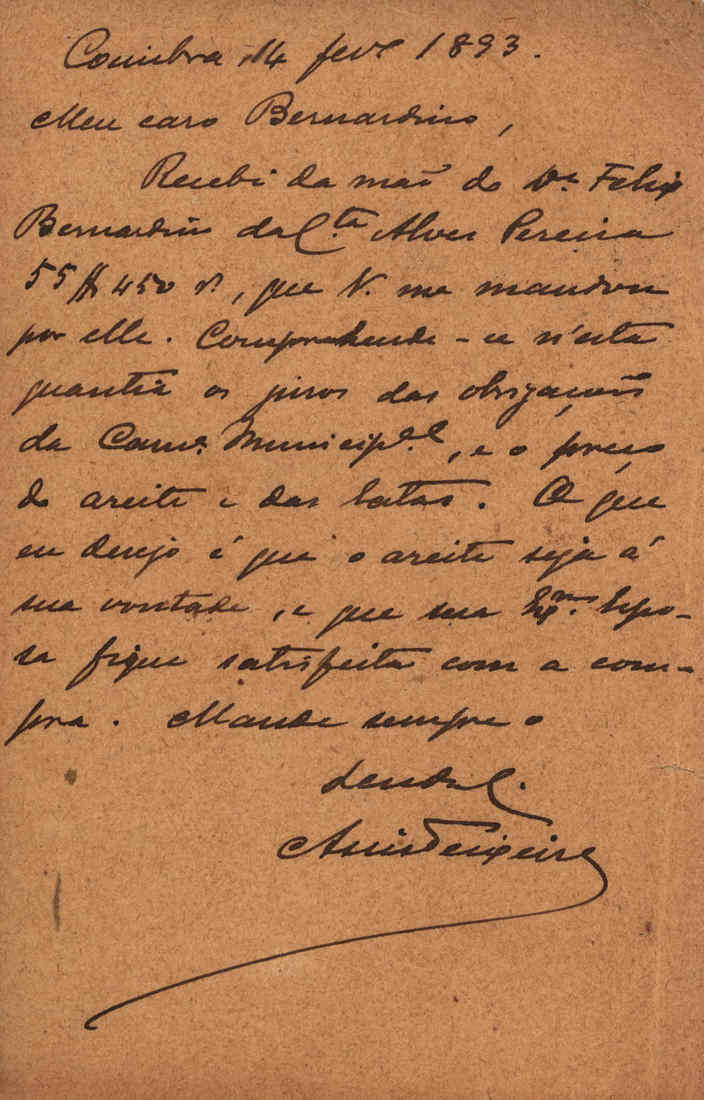 Coimbra 14 fevº 1893.
Meu caro Bernardino,
Recebi da mão do Dr. Felix
Bernardino da C.ta Alves Pereira
55$450 r.s, que V. me mandou
por elle. Comprehende-se n'esta
quantia os juros das obrigações
da Cam.ª Municip.al, e o preço
do azeite e das batas. O que
eu desejo é que o azeite seja á
sua vontade, e que sua Ex.ma Espo-
sa fique satisfeita com a com-
pra. Mande sempre o
Teixeira